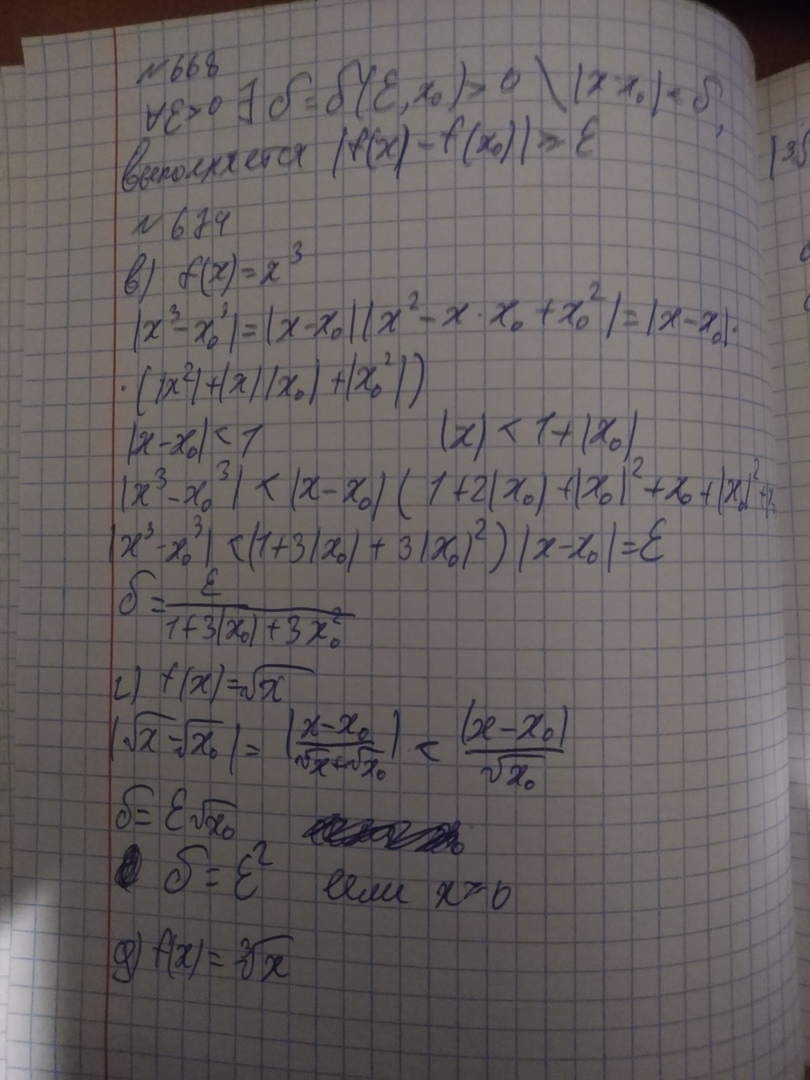 №668
∀ε>0 ∃ δ=δ(ε,x₀)>0 \ |x-x₀|<δ,
выполняется |f(x)-f(x₀)|≥ε
№674
в) f(x)=x³
|x³-x₀³|=|x-x₀||x²-x·x₀+x₀²|=|x-x₀|·
·(|x²|+|x||x₀|+|x₀²|)
|x-x₀|<1 |x|<1+|x₀|
|x³-x₀³|<|x-x₀|(1+2|x₀|+|x₀|²+x₀+|x₀|²+
|x³-x₀³|<(1+3|x₀|+3|x₀|²)|x-x₀|=ε
δ=ε/(1+3|x₀|+3x₀²)
г) f(x)=√x
|√x-√x₀|=|(x-x₀)/(√x+√x₀)|<|x-x₀|/√x₀
δ=ε√x₀
δ=ε² если x=0
д) f(x)=∛x